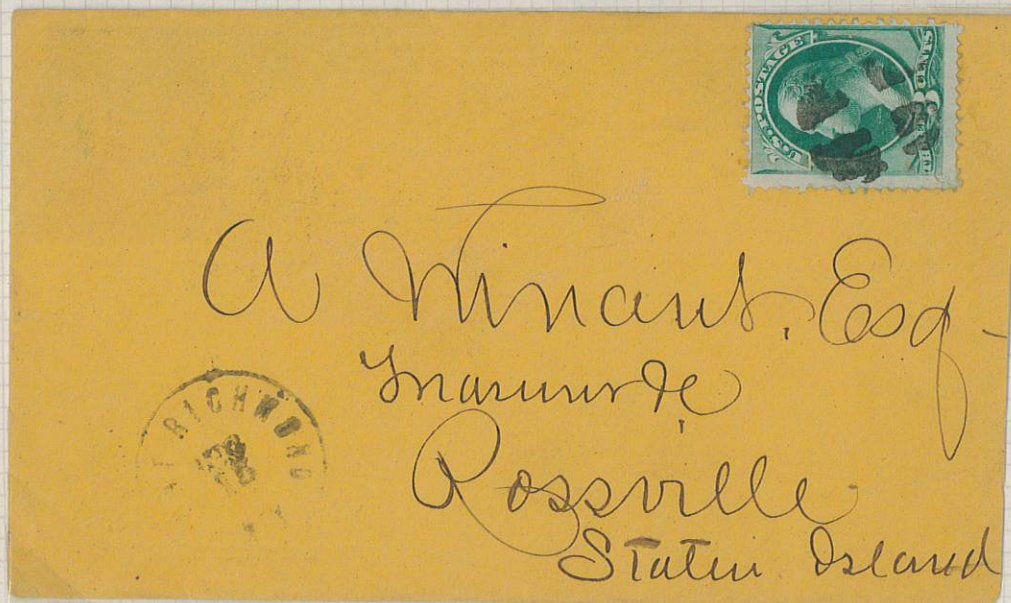 U.S. POSTAGE
A Winant. Esq-
Rossville
Staten Island
RICHMOND